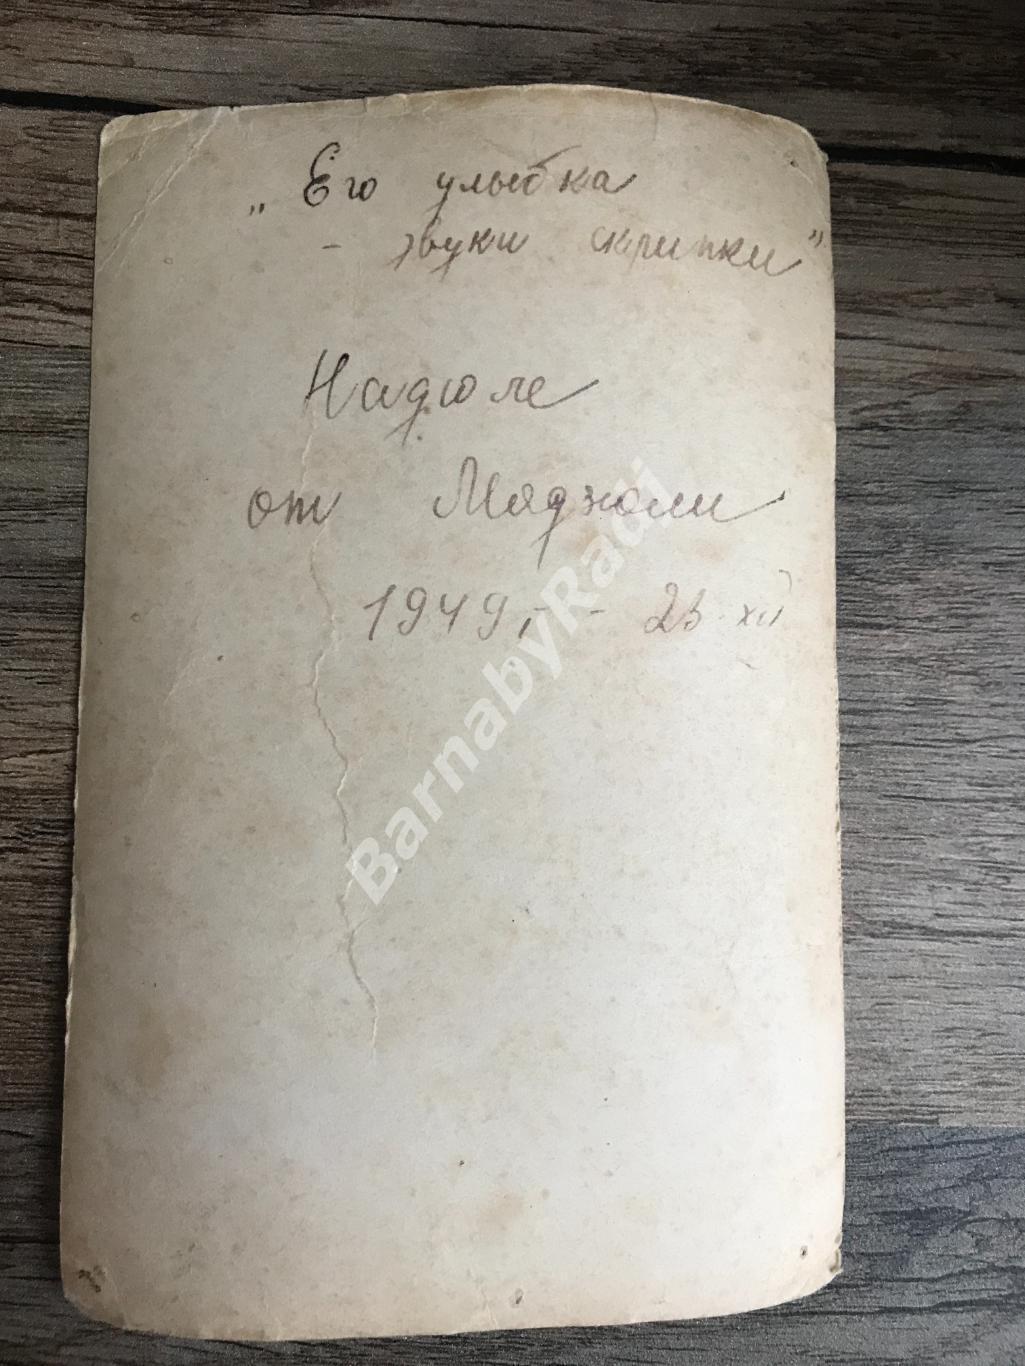 „Его улыбка
– звуки скрипки"
Надюле
от
1949, – – 23 XII
BarnabyRadi